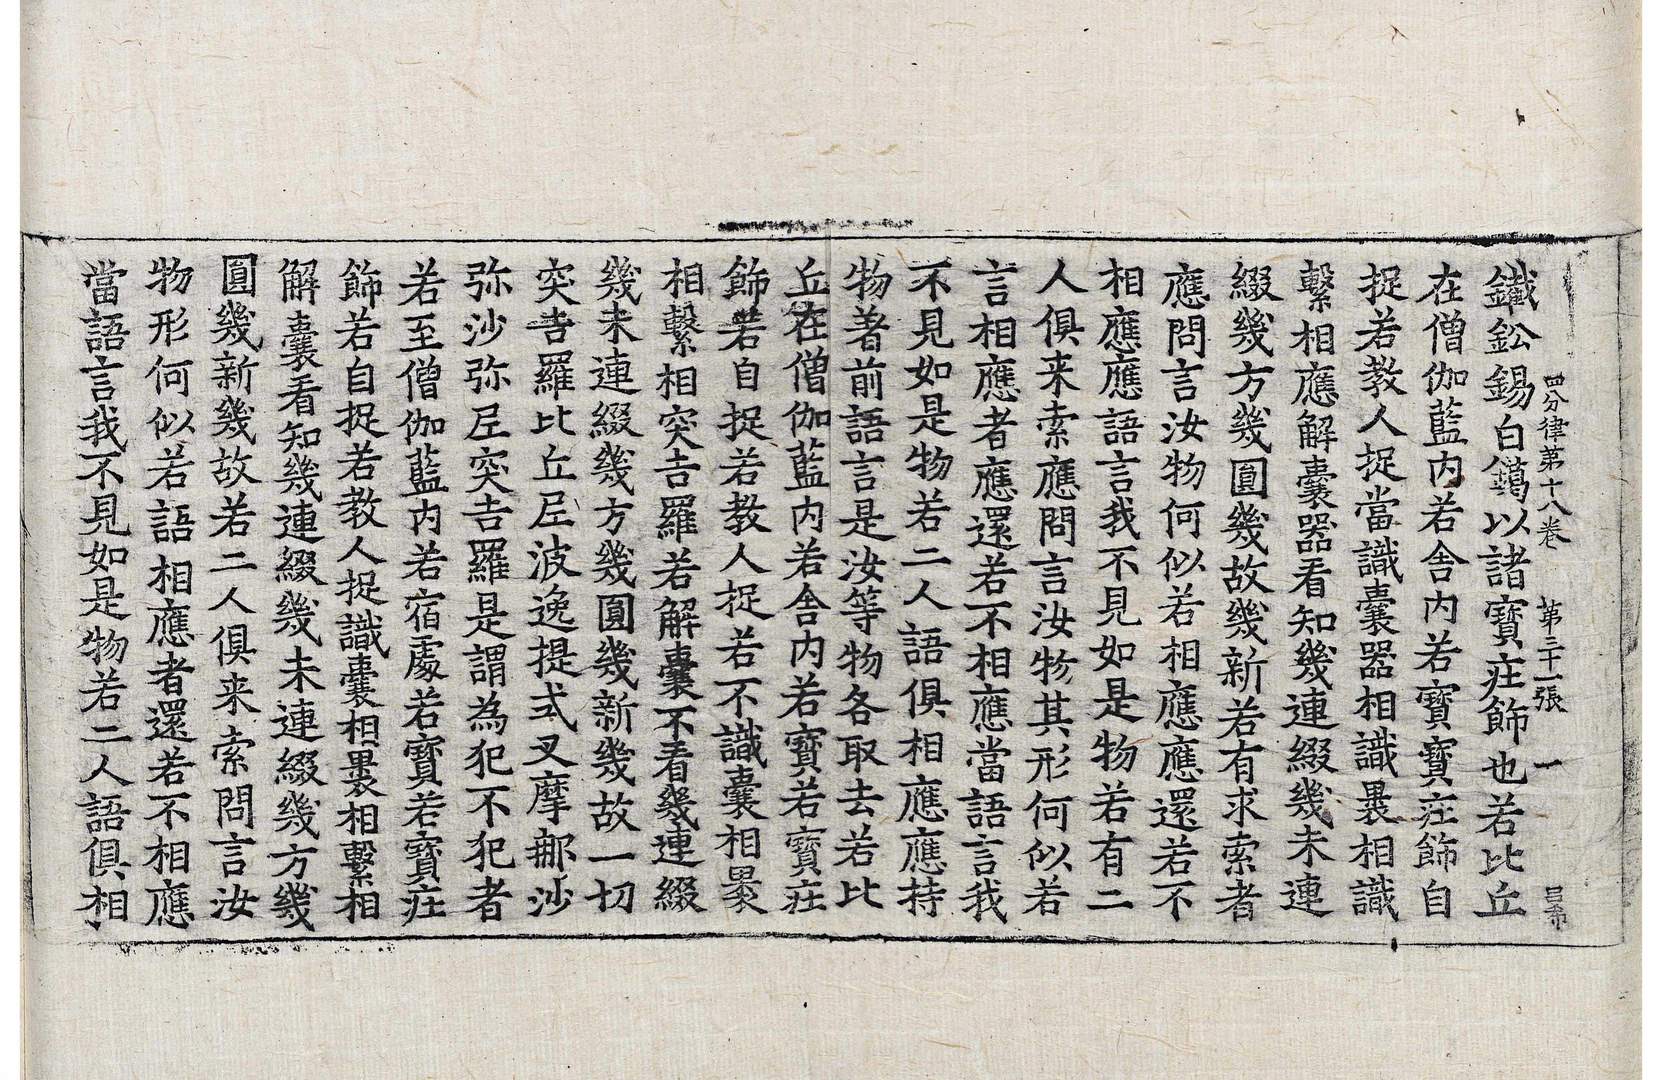 四分律第十八卷 第三十一張 一 呂希
鐵鈆錫白鑞以諸寶莊飾也若比丘
在僧伽藍内若舍内若寶寶莊飾自
捉若教人捉當識囊器相識裹相識
繫相應解囊器看知幾連綴幾未連
綴幾方幾圓幾故幾新若有求索者
應問言汝物何似若相應應還若不
相應應語言我不見如是物若有二
人俱来索應問言汝物其形何似若
言相應者應還若不相應當語言我
不見如是物若二人語俱相應應持
物著前語言是汝等物各取去若比
丘在僧伽藍内若舍内若寶若寶莊
飾若自捉若教人捉若不識囊相裹
相繫相突吉羅若解囊不看幾連綴
幾未連綴幾方幾圓幾新幾故一切
突吉羅比丘尼波逸提式叉摩那沙
弥沙弥尼突吉羅是謂為犯不犯者
若至僧伽藍内若宿處若寶若寶莊
飾若自捉若教人捉識囊相裹相繫相
解囊看知幾連綴幾未連綴幾方幾
圓幾新幾故若二人俱来索問言汝
物形何似若語相應者還若不相應
當語言我不見如是物若二人語俱相